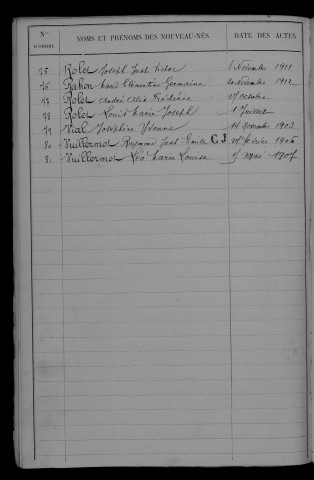 Nos D'ORDRE NOMS ET PRÉNOMS DES NOUVEAU-NÉS. DATE DES ACTES
75 Rolet Joseph Just Victor 8 Novembre 1911
76 Rahon Marie Clémentine Germaine 20 Novembre 1912
77 Rolet André Frédéric 27 octobre
78 Rolet Louis Marie Joseph 1 Juillet
79 Vial Joséphine Yvonne 14 novembre 1903
80 Vuillermoz Raymond Just Emile C J février 1906
81 Vuillermoz Léa Marie Louise 15 Mai 1907